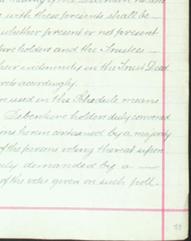 with these presents shall be
whether present or not present
holders and the Trustees
indemnity in the Trust Deed
accordingly.
used in the Schedule means
Debenture holders duly convened
herein contained by a majority
of the persons voting thereat upon
duly demanded by a
of the votes given on such poll.